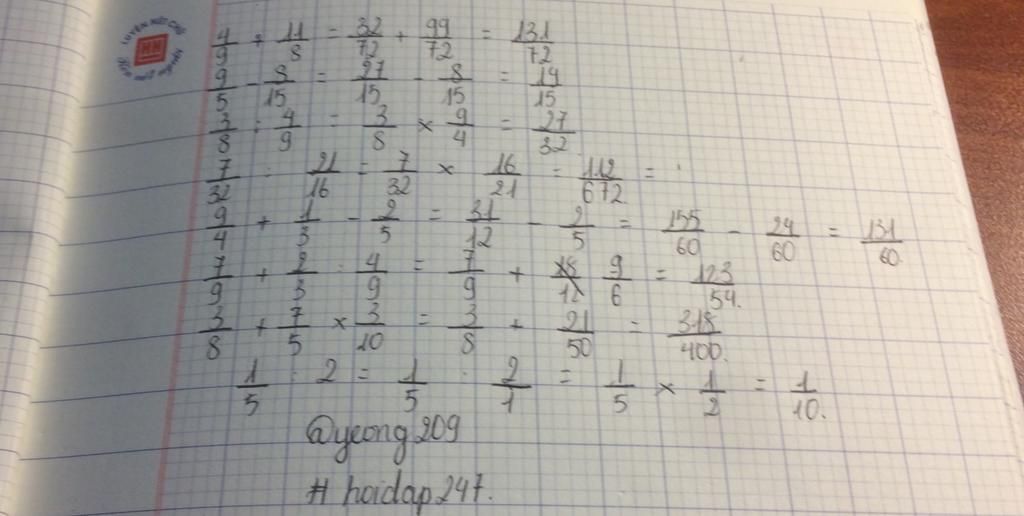 LUYỆN NÉT CHỮ
4/9 + 11/8 = 32/72 + 99/72 = 131/72
9/5 - 8/15 = 27/15 - 8/15 = 19/15
3/8 : 4/9 = 3/8 × 9/4 = 27/32
7/32 : 21/16 = 7/32 × 16/21 = 112/672 =
9/4 + 1/3 - 2/5 = 31/12 - 2/5 = 155/60 - 24/60 = 131/60.
7/9 + 2/3 : 4/9 = 7/9 + 18/12 9/6 = 123/54.
3/8 + 7/5 × 3/10 = 3/8 + 21/50 = 318/400.
1/5 : 2 = 1/5 : 2/1 = 1/5 × 1/2 = 1/10.
@yeong209
# hoidap247.